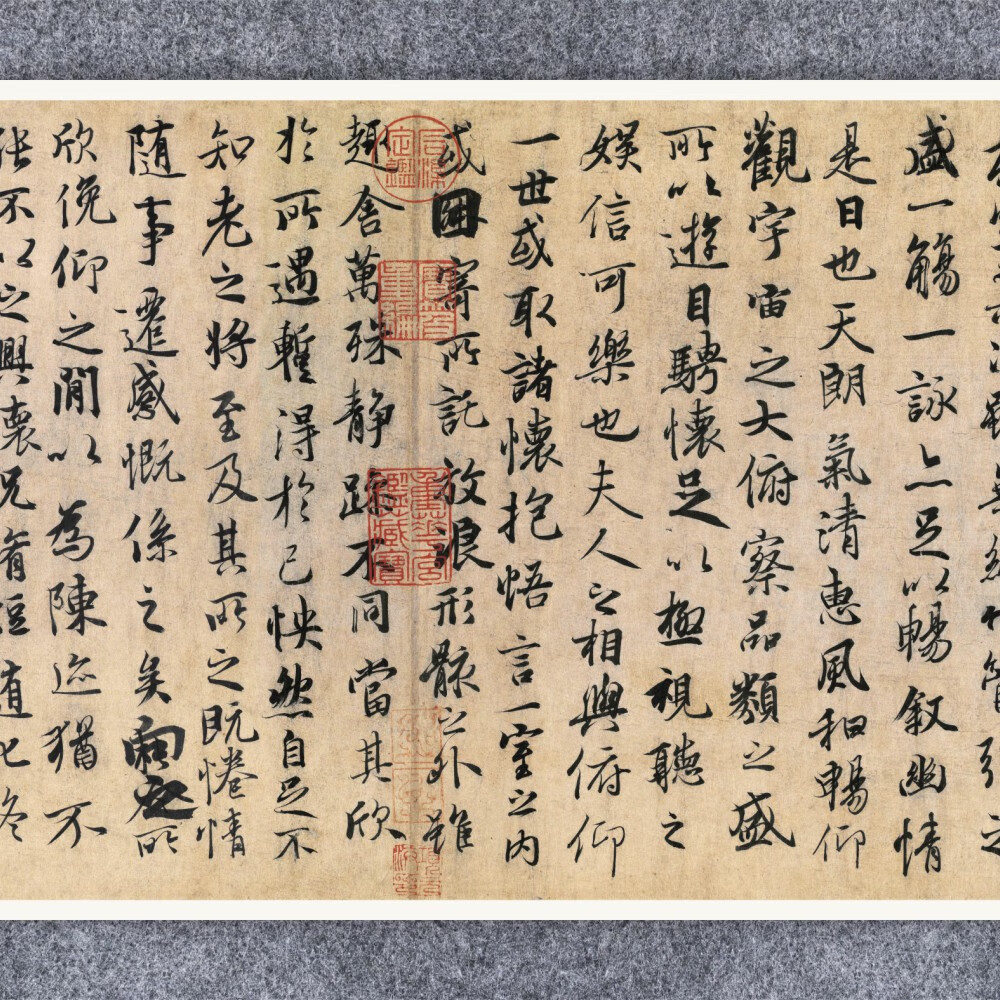 雖無絲竹管弦之
盛一觴一詠亦足以暢叙幽情
是日也天朗氣清惠風和暢仰
觀宇宙之大俯察品類之盛
所以遊目騁懷足以極視聽之
娛信可樂也夫人之相與俯仰
一世或取諸懷抱悟言一室之內
或因寄所託放浪形骸之外雖
趣舍萬殊靜躁不同當其欣
於所遇蹔得於己怏然自足不
知老之將至及其所之既惓情
隨事遷感慨係之矣向之所
欣俛仰之閒以為陳迹猶不
能不以之興懷況脩短隨化終